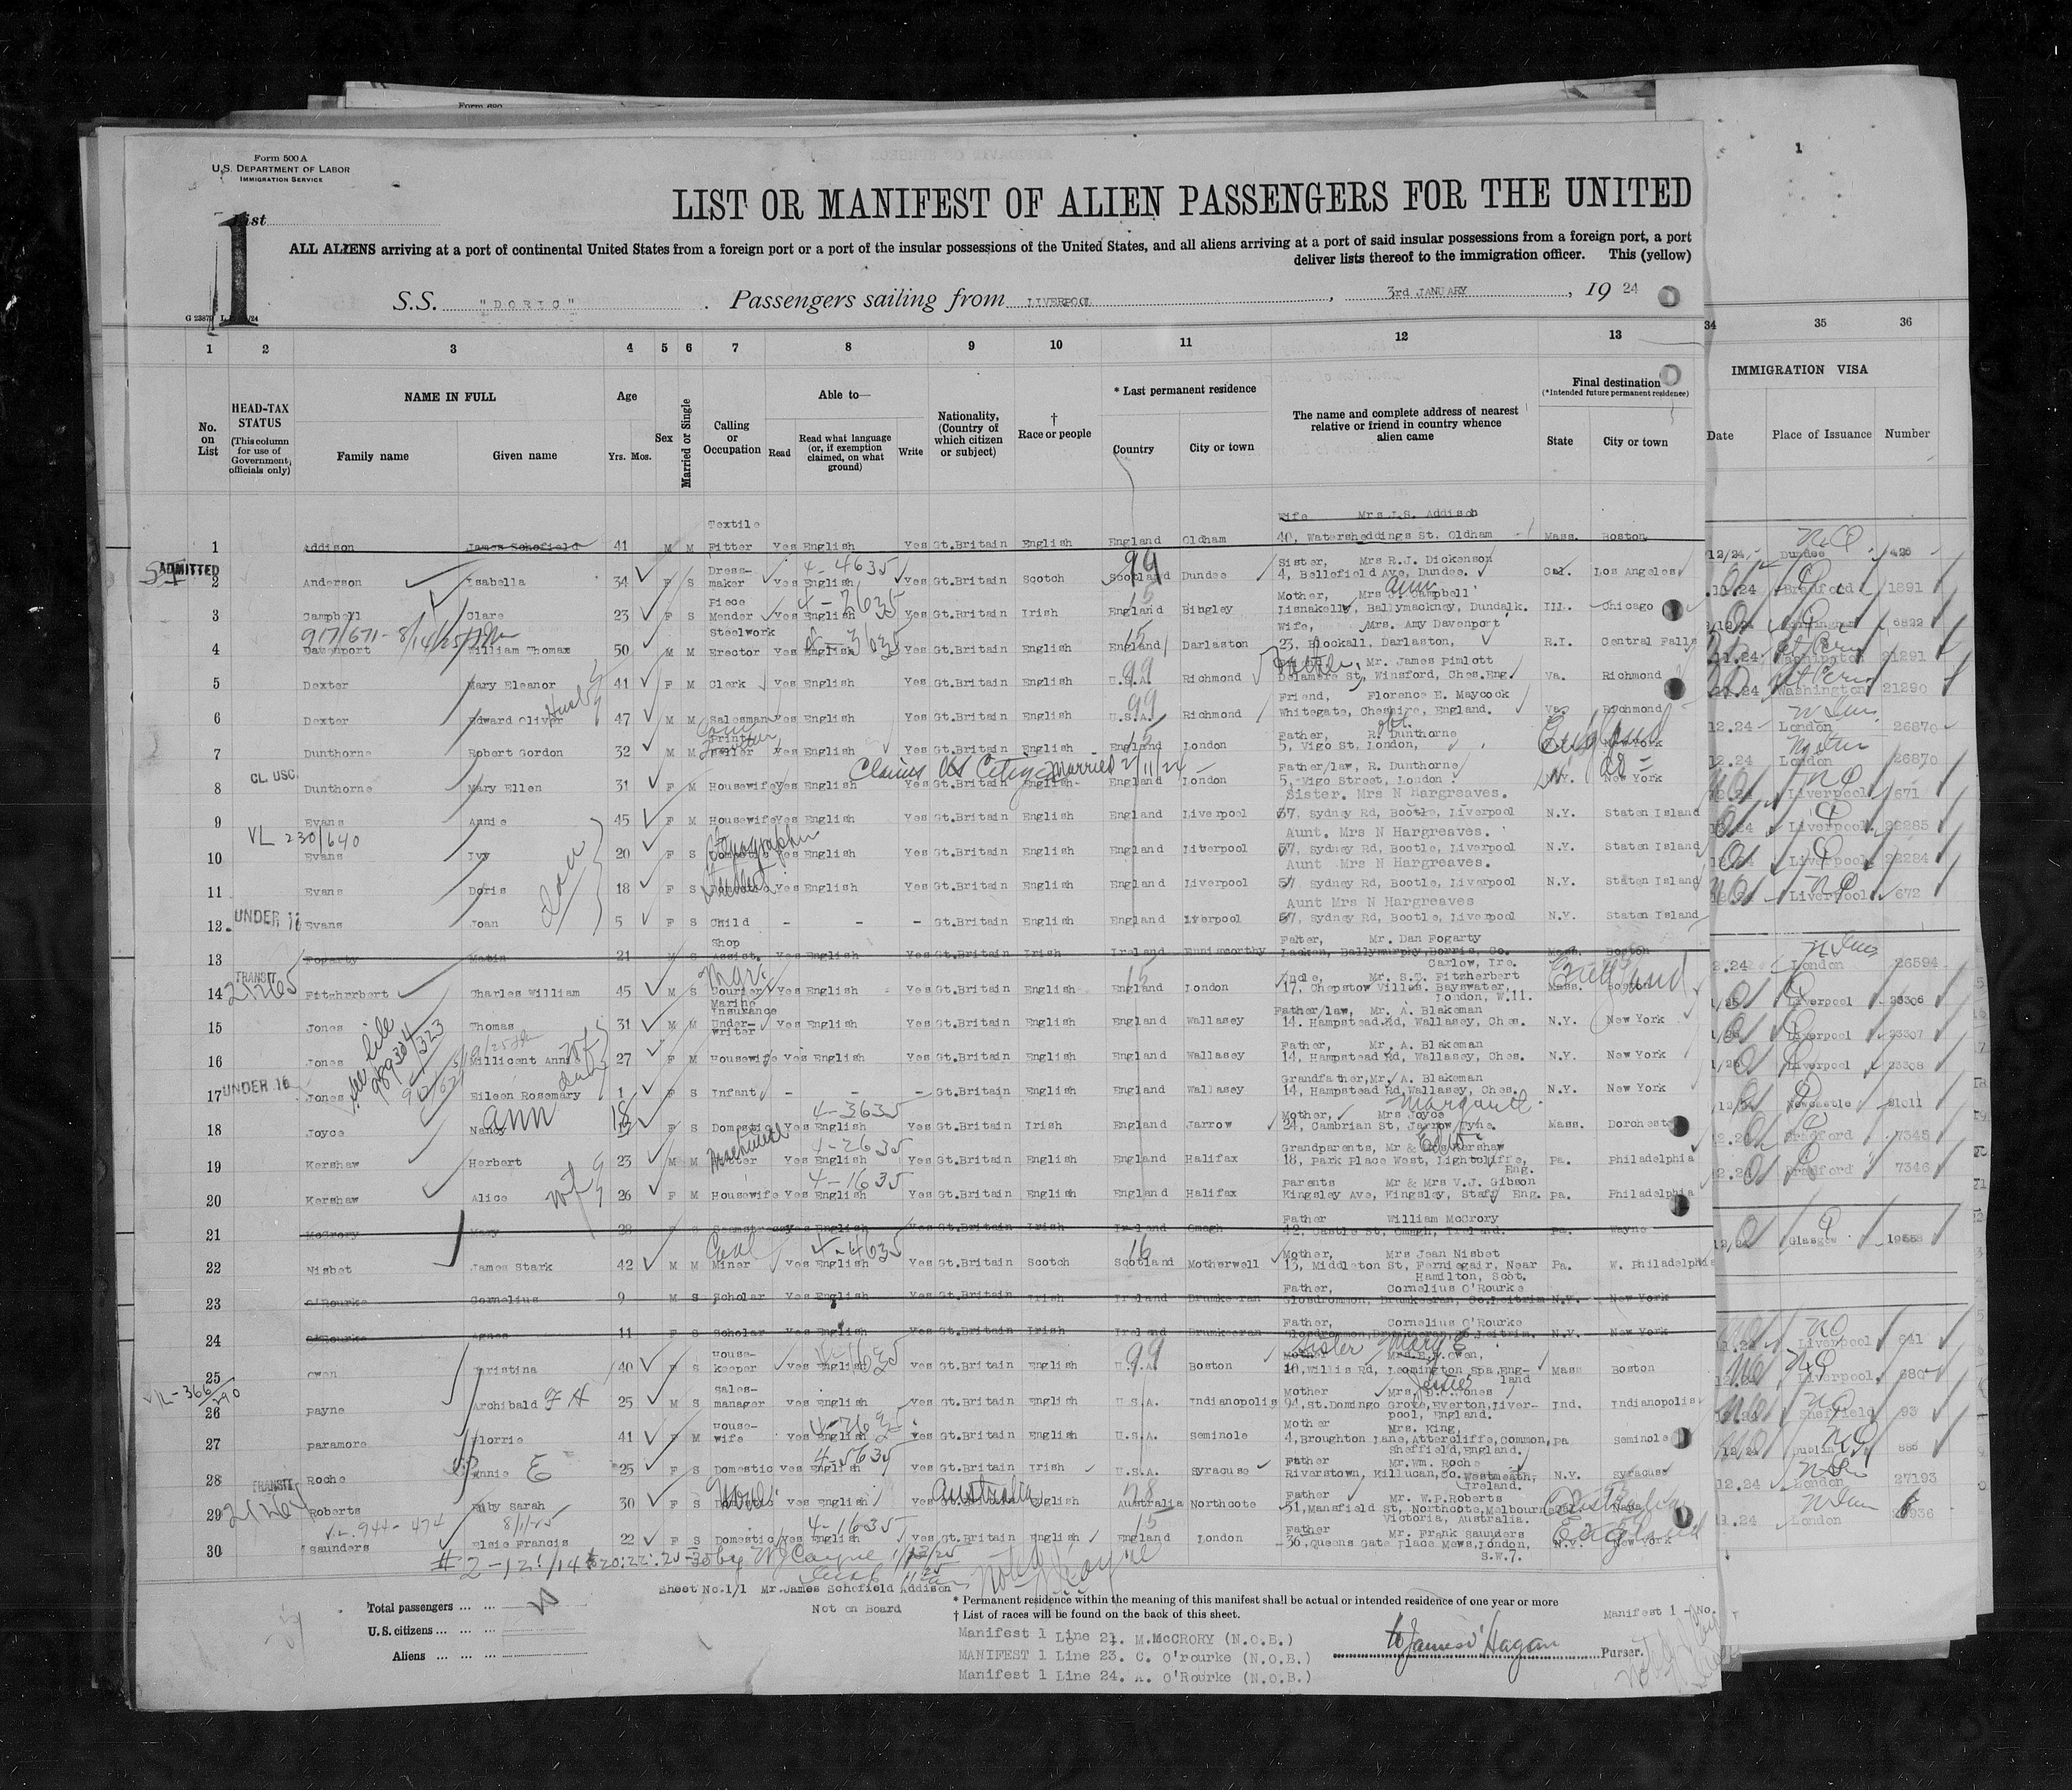 Form 500 A
U.S. DEPARTMENT OF LABOR
IMMIGRATION SERVICE
List
1
LIST OR MANIFEST OF ALIEN PASSENGERS FOR THE UNITED
ALL ALIENS arriving at a port of continental United States from a foreign port or a port of the insular possessions of the United States, and all aliens arriving at a port of said insular possessions from a foreign port, a port
deliver lists thereof to the immigration officer. This (yellow)
S.S. "DORIC". Passengers sailing from LIVERPOOL, 3rd JANUARY, 19 24
1 2 3 4 5 6 7 8 9 10 11 12 13 34 35 36
No. on List
HEAD-TAX STATUS (This column for use of Government officials only)
NAME IN FULL
Family name Given name
Age
Yrs. Mos.
Sex
Married or Single
Calling or Occupation
Able to—
Read
Read what language (or, if exemption claimed, on what ground)
Write
Nationality, (Country of which citizen or subject)
† Race or people
* Last permanent residence
Country City or town
The name and complete address of nearest relative or friend in country whence alien came
Final destination (*Intended future permanent residence)
State City or town
IMMIGRATION VISA
Date Place of Issuance Number
1 Addison James Schofield 41 M M Textile Fitter Yes English Yes Gt.Britain English England Oldham Wife Mrs J.S. Addison 40, Watersheddings St. Oldham Mass. Boston
ADMITTED
2 Anderson Isabella 34 F S Dress-maker Yes English 4-4635 Yes Gt.Britain Scotch Scotland 99 Dundee Sister, Mrs R.J. Dickenson 4, Bellefield Ave, Dundee. Cal. Los Angeles 12/24 Dundee 426
3 Campbell Clare 23 F S Piece Mender Yes English 4-2635 Yes Gt.Britain Irish England 15 Bingley Mother, Mrs Ann Campbell Lisnakelly, Ballymackney, Dundalk. Ill. Chicago Bradford 1891
917/671-8/14/25
4 Davenport William Thomax 50 M M Steelwork Erector Yes English 4-3635 Yes Gt.Britain English England 15 Darlaston Wife, Mrs. Amy Davenport 23, Blockall, Darlaston, R.I. Central Falls 6822
5 Dexter Mary Eleanor 41 F M Clerk Yes English Yes Gt.Britain English U.S.A. 99 Richmond Father, Mr. James Pimlott Delamere St, Winsford, Ches.Eng. Va. Richmond 11.24 Washington 21291
6 Dexter Edward Oliver 47 M M Salesman Yes English Yes Gt.Britain English U.S.A. 99 Richmond Friend, Florence E. Maycock Whitegate, Cheshire, England. Va. Richmond 11.24 Washington 21290
7 Dunthorne Robert Gordon 32 M M Print Seller Yes English Yes Gt.Britain English England 15 London Father, R. Dunthorne 5, Vigo St, London, England New York 12.24 London 26870
CL. USC.
Claims US Citizen Married 2/11/24
8 Dunthorne Mary Ellen 31 F M Housewife Yes English Yes Gt.Britain English England London Father/law, R. Dunthorne 5, Vigo Street, London N.Y. New York London 26870
9 Evans Annie 45 F M Housewife Yes English Yes Gt.Britain English England Liverpool Sister. Mrs N Hargreaves. 57, Sydney Rd, Bootle, Liverpool N.Y. Staten Island 12.24 Liverpool 671
VL 230/640
10 Evans Ivy 20 F S Domestic Stenographer Yes English Yes Gt.Britain English England Liverpool Aunt. Mrs N Hargreaves. 57, Sydney Rd, Bootle, Liverpool N.Y. Staten Island Liverpool 22285
11 Evans Doris 18 F S Domestic Student Yes English Yes Gt.Britain English England Liverpool Aunt Mrs N Hargreaves. 57, Sydney Rd, Bootle, Liverpool N.Y. Staten Island Liverpool 22284
UNDER 16
12 Evans Joan 5 F S Child - - - Gt.Britain English England Liverpool Aunt Mrs N Hargreaves 57, Sydney Rd, Bootle, Liverpool N.Y. Staten Island Liverpool 672
13 Fogarty Matin 21 M S Shop Assist. Yes English Yes Gt.Britain Irish Ireland Enniscorthy Father, Mr. Dan Fogarty Lacken, Ballymurphy, Borris, Co. Carlow, Ire. Mass. Boston
TRANSIT
14 Fitzhrrbert Charles William 45 M S Courier Yes English Yes Gt.Britain English England 15 London Uncle, Mr. S.T. Fitzherbert 17, Chepstow Villas. Bayswater, London, W.11. Mass. Boston England 2.24 London 26594
15 Jones Thomas 31 M M Marine Insurance Under-writer Yes English Yes Gt.Britain English England Wallasey Father/law, Mr. A. Blakeman 14. Hampstead Rd, Wallasey, Ches. N.Y. New York 1/25 Liverpool 23306
See file 989304/323
16 Jones Millicent Ann Wf 27 F M Housewife Yes English Yes Gt.Britain English England Wallasey Father, Mr. A. Blakeman 14. Hampstead Rd, Wallasey, Ches. N.Y. New York 1/25 Liverpool 23307
UNDER 16
17 Jones Eileen Rosemary 1 F S Infant - - - Gt.Britain English England Wallasey Grandfather, Mr. A. Blakeman 14, Hampstead Rd, Wallasey, Ches. N.Y. New York 1/25 Liverpool 23308
18 Joyce Nancy Ann 18 F S Domestic Yes English 4-3635 Yes Gt.Britain Irish England Jarrow Mother, Mrs Margaret Joyce 24, Cambrian St, Jarrow, Tyne. Mass. Dorchester Newcastle 21011
19 Kershaw Herbert 23 M M Yes English 4-2635 Yes Gt.Britain English England Halifax Grandparents, Mr & Kershaw 18, Park Place West, Lightcliffe, Eng. Pa. Philadelphia Bradford 7345
20 Kershaw Alice wife 26 F M Housewife Yes English 4-1635 Yes Gt.Britain English England Halifax parents Mr & Mrs V.J. Gibson Kingsley Ave, Kingsley, Staff Eng. pa. Philadelphia 12.24 Bradford 7346
21 McCrory Mary 28 F S Seamstress Yes English Yes Gt.Britain Irish Ireland Omagh Father William McCrory 42, Castle St, Omagh, Ireland. Pa. Wayne
22 Nisbet James Stark 42 M M Coal Miner Yes English 4-4635 Yes Gt.Britain Scotch Scotland 16 Motherwell Mother, Mrs Jean Nisbet 13, Middleton St, Ferniegair, Near Hamilton, Scot. Pa. W. Philadelphia 12/24 Glasgow 19558
23 O'Rourke Cornelius 9 M S Scholar Yes English Yes Gt.Britain Irish Ireland Drumkeeran Father, Cornelius O'Rourke Glosdrommon, Drumkeeran, Co.Leitrim N.Y. New York
24 O'Rourke Agnes 11 F S Scholar Yes English Yes Gt.Britain Irish Ireland Drumkeeran Father, Cornelius O'Rourke Glosdrommon, Drumkeeran, Co Leitrim. N.Y. New York
25 Owen Christina 40 F S House-keeper yes English yes Gt.Britain English U.S.A. 99 Boston Mother Sister Mary E Mrs.E.W.Owen, 10, Willis Rd, Leamington Spa, Eng-land Mass Boston Liverpool 641
VL-366/290
26 payne Archibald F H 25 M S sales-manager yes English yes Gt.Britain English U.S.A. Indianopolis Mother Mrs. D. Jones 94, St.Domingo Grove, Everton, Liver-pool, England. Ind. Indianopolis Liverpool
27 paramore Florrie 41 F M House-wife yes English yes Gt.Britain English U.S.A. Seminole Mother Mrs. King, 4, Broughton Lane, Attercliffe, Common, Sheffield, England. pa Seminole Sheffield 93
28 Roche Annie E 25 F S Domestic yes English 4-5635 yes Gt.Britain Irish U.S.A. Syracuse Father Mr.Wm. Roche Riverstown, Killucan, Co. Westmeath, Ireland. N.Y. Syracuse 12/24 Dublin 886
TRANSIT
29 Roberts Ruby Sarah 30 F S Domestic None yes English yes Gt.Britain Australia English Australia Northcote Father Mr. W.P.Roberts 51, Mansfield St, Northcote, Melbourne Victoria, Australia. 12.24 London 27193
V.L. 944-474 8/11/25
30 Saunders Elsie Francis 22 F S Domestic yes English 4-1635 yes Gt.Britain English England 15 London Father Mr. Frank Saunders 36, Queens Gate Place Mews, London, S.W.7. N.Y. New York England 11.24 London
Sheet No.1/1 Mr.James Schofield Addison
Not on Board
Total passengers ... ...
U.S. citizens ... ... ...
Aliens ... ... ...
* Permanent residence within the meaning of this manifest shall be actual or intended residence of one year or more
† List of races will be found on the back of this sheet.
Manifest 1 Line 21. M.McCRORY (N.O.B.)
MANIFEST 1 Line 23. C. O'rourke (N.O.B.)
Manifest 1 Line 24. A. O'Rourke (N.O.B.)
Purser.
Manifest 1 - No.